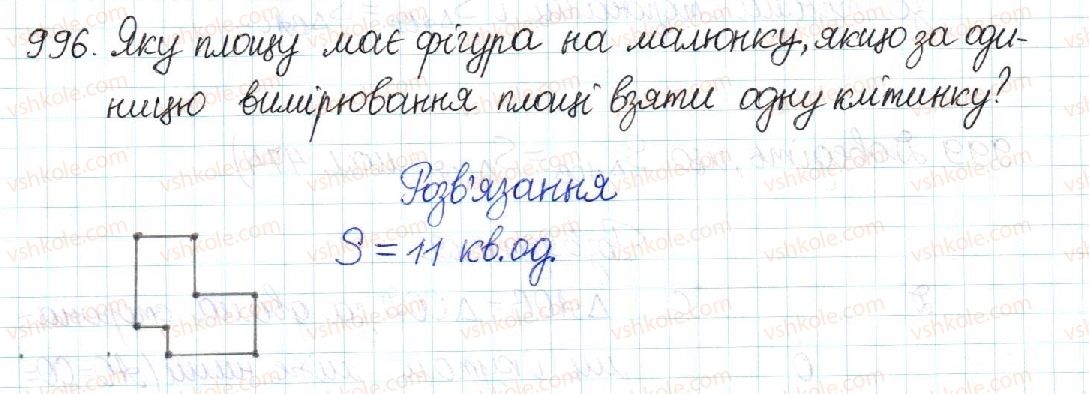 996. Яку площу має фігура на малюнку, якщо за оди-
ницю вимірювання площі взяти одну клітинку?
Розв'язання
S = 11 кв.од.